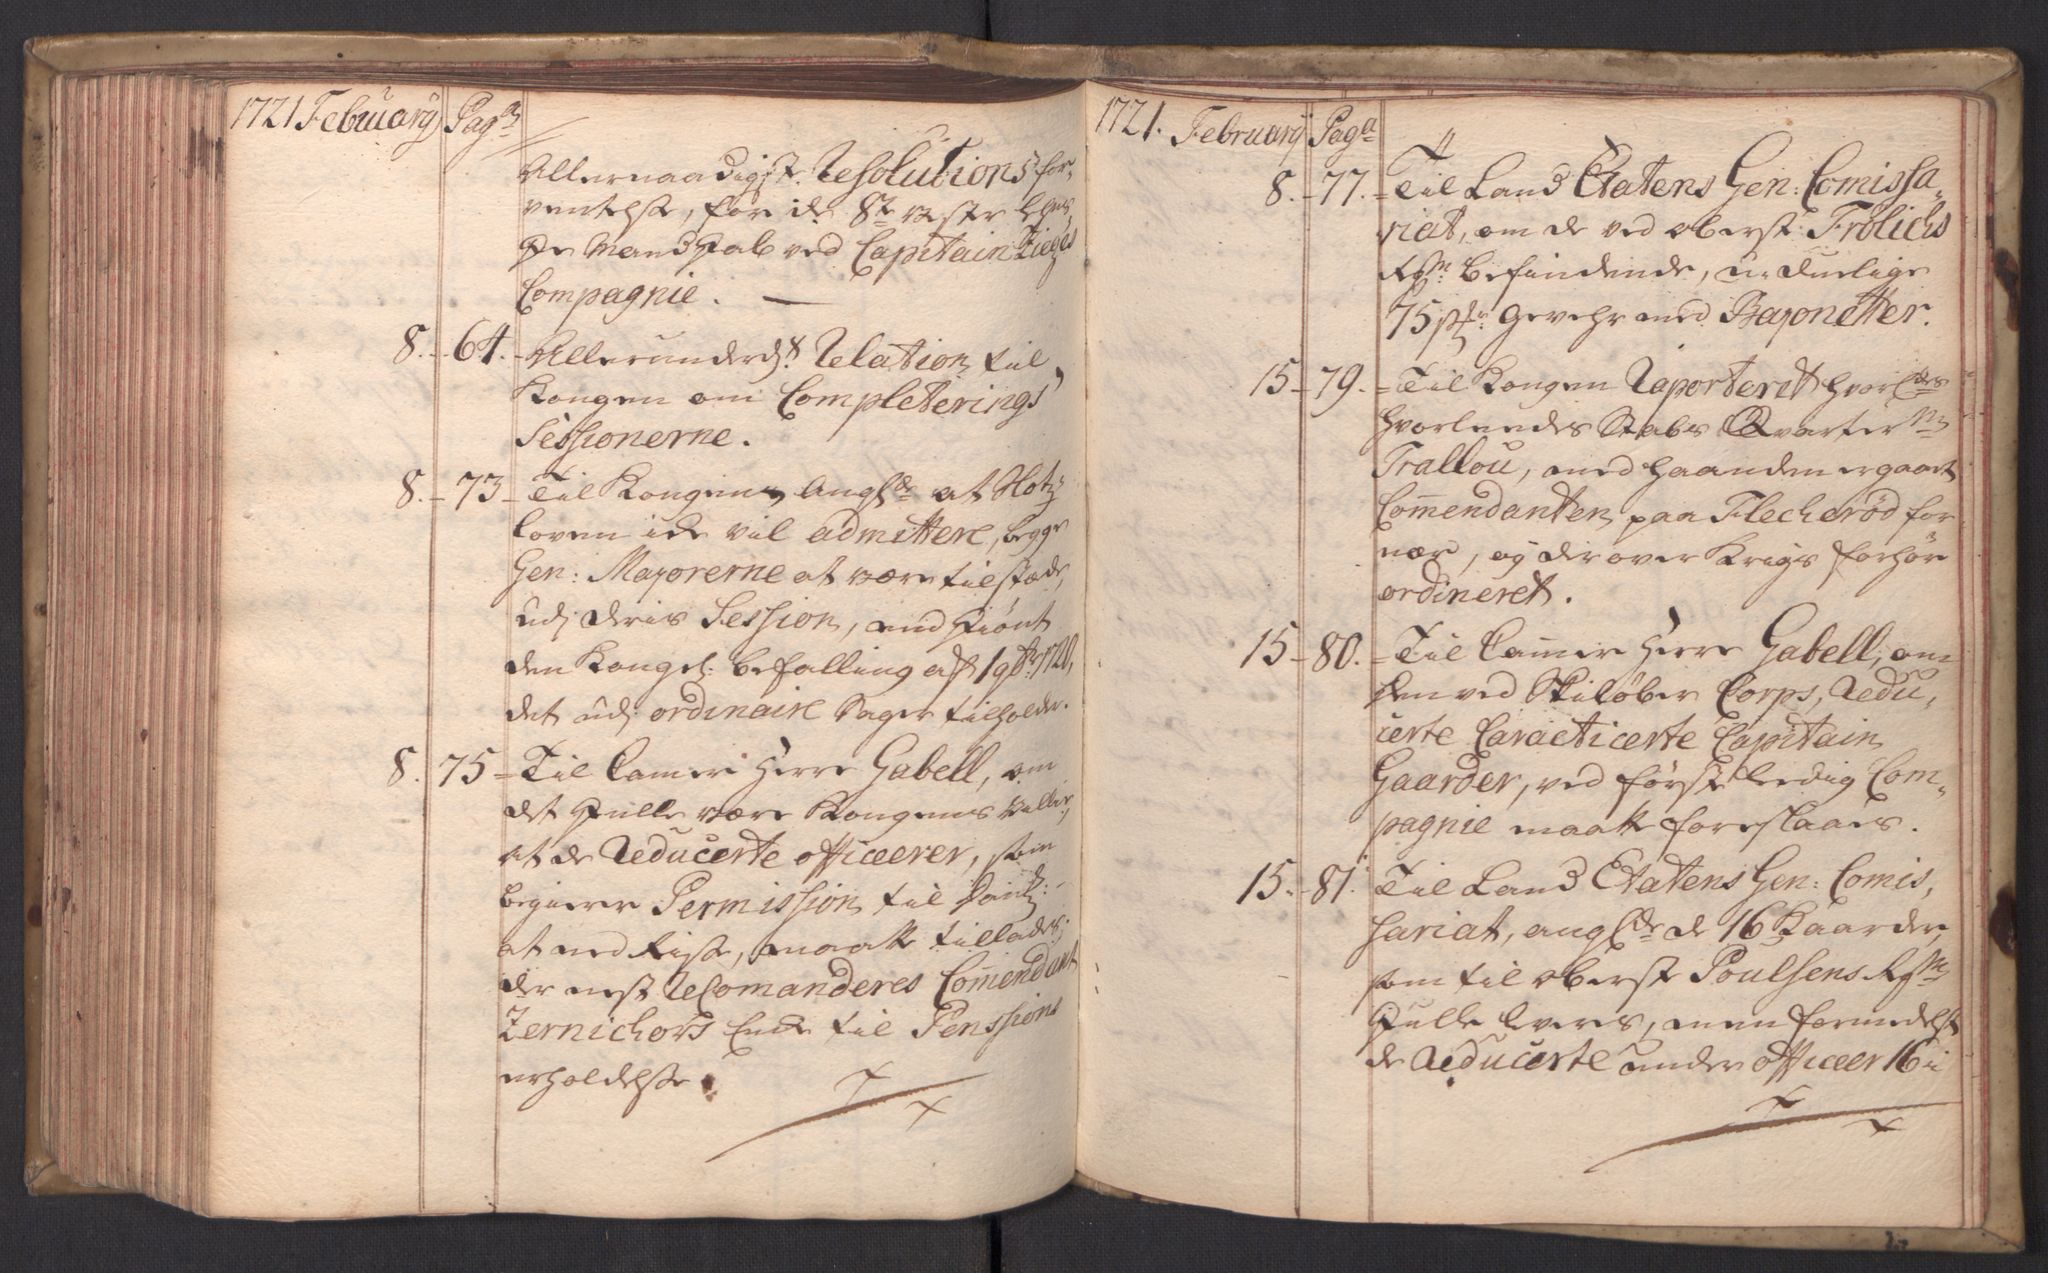 1721 Februarÿ Pag:a
Allernaadigst. Resolutions for-
ventelse, for de 8te
Mandskab ved Capitain Zieg
Compagnie.
8. - 64. - Allerunderd:t Relation til
Kongen om Completerings
Sessionerne.
8. - 73 - Til Kongen, Ang:de at
loven icke vil admittere, begge
Gen: Majorerne at være tilstæde,
udj deris Session, end skiönt
den Kongel: befalling af 1 9br: 1720,
det udj ordinaire Sager tilholder.
8. 75 - Til Camer Herre Gabell, om
det skulle være Kongens Villie,
at de Reducerte officerer, som
begierer Permission til
at nedreise, maatte tillades;
der nest Recomanderes Commendant
Zernichors Encke til Penssions
erholdelse.
1721. Februarÿ Pag:a
8. - 77. - Til Land Etatens Gen: Comissa-
riat, om de ved oberst Frölichs
Rg:m befindende, u-duelige
75 st:r Gevehr med Bajonetter.
15 - 79. - Til Kongen Raporteret
hvorleedes Stabs Qvarterm:
Trallou, med haanden ergaaet
Commendanten paa Flecheröd for
nær, og derover Krigs forhör
ordineret.
15 - 80. - Til Camer Herre Gabell, om
den ved Skilöber Corps, Redu-
certe Caracticerte Capitain
Gaarder, ved förste ledig Com-
pagnie maatte foreslaaes.
15. - 81. Til Land Etatens Gen: Comis,
sariat, ang:de de 16 Kaarder,
som til oberst Poulsens Rg:m
skulle leveres, men formedelst
de Reducerte under officeer 16 i